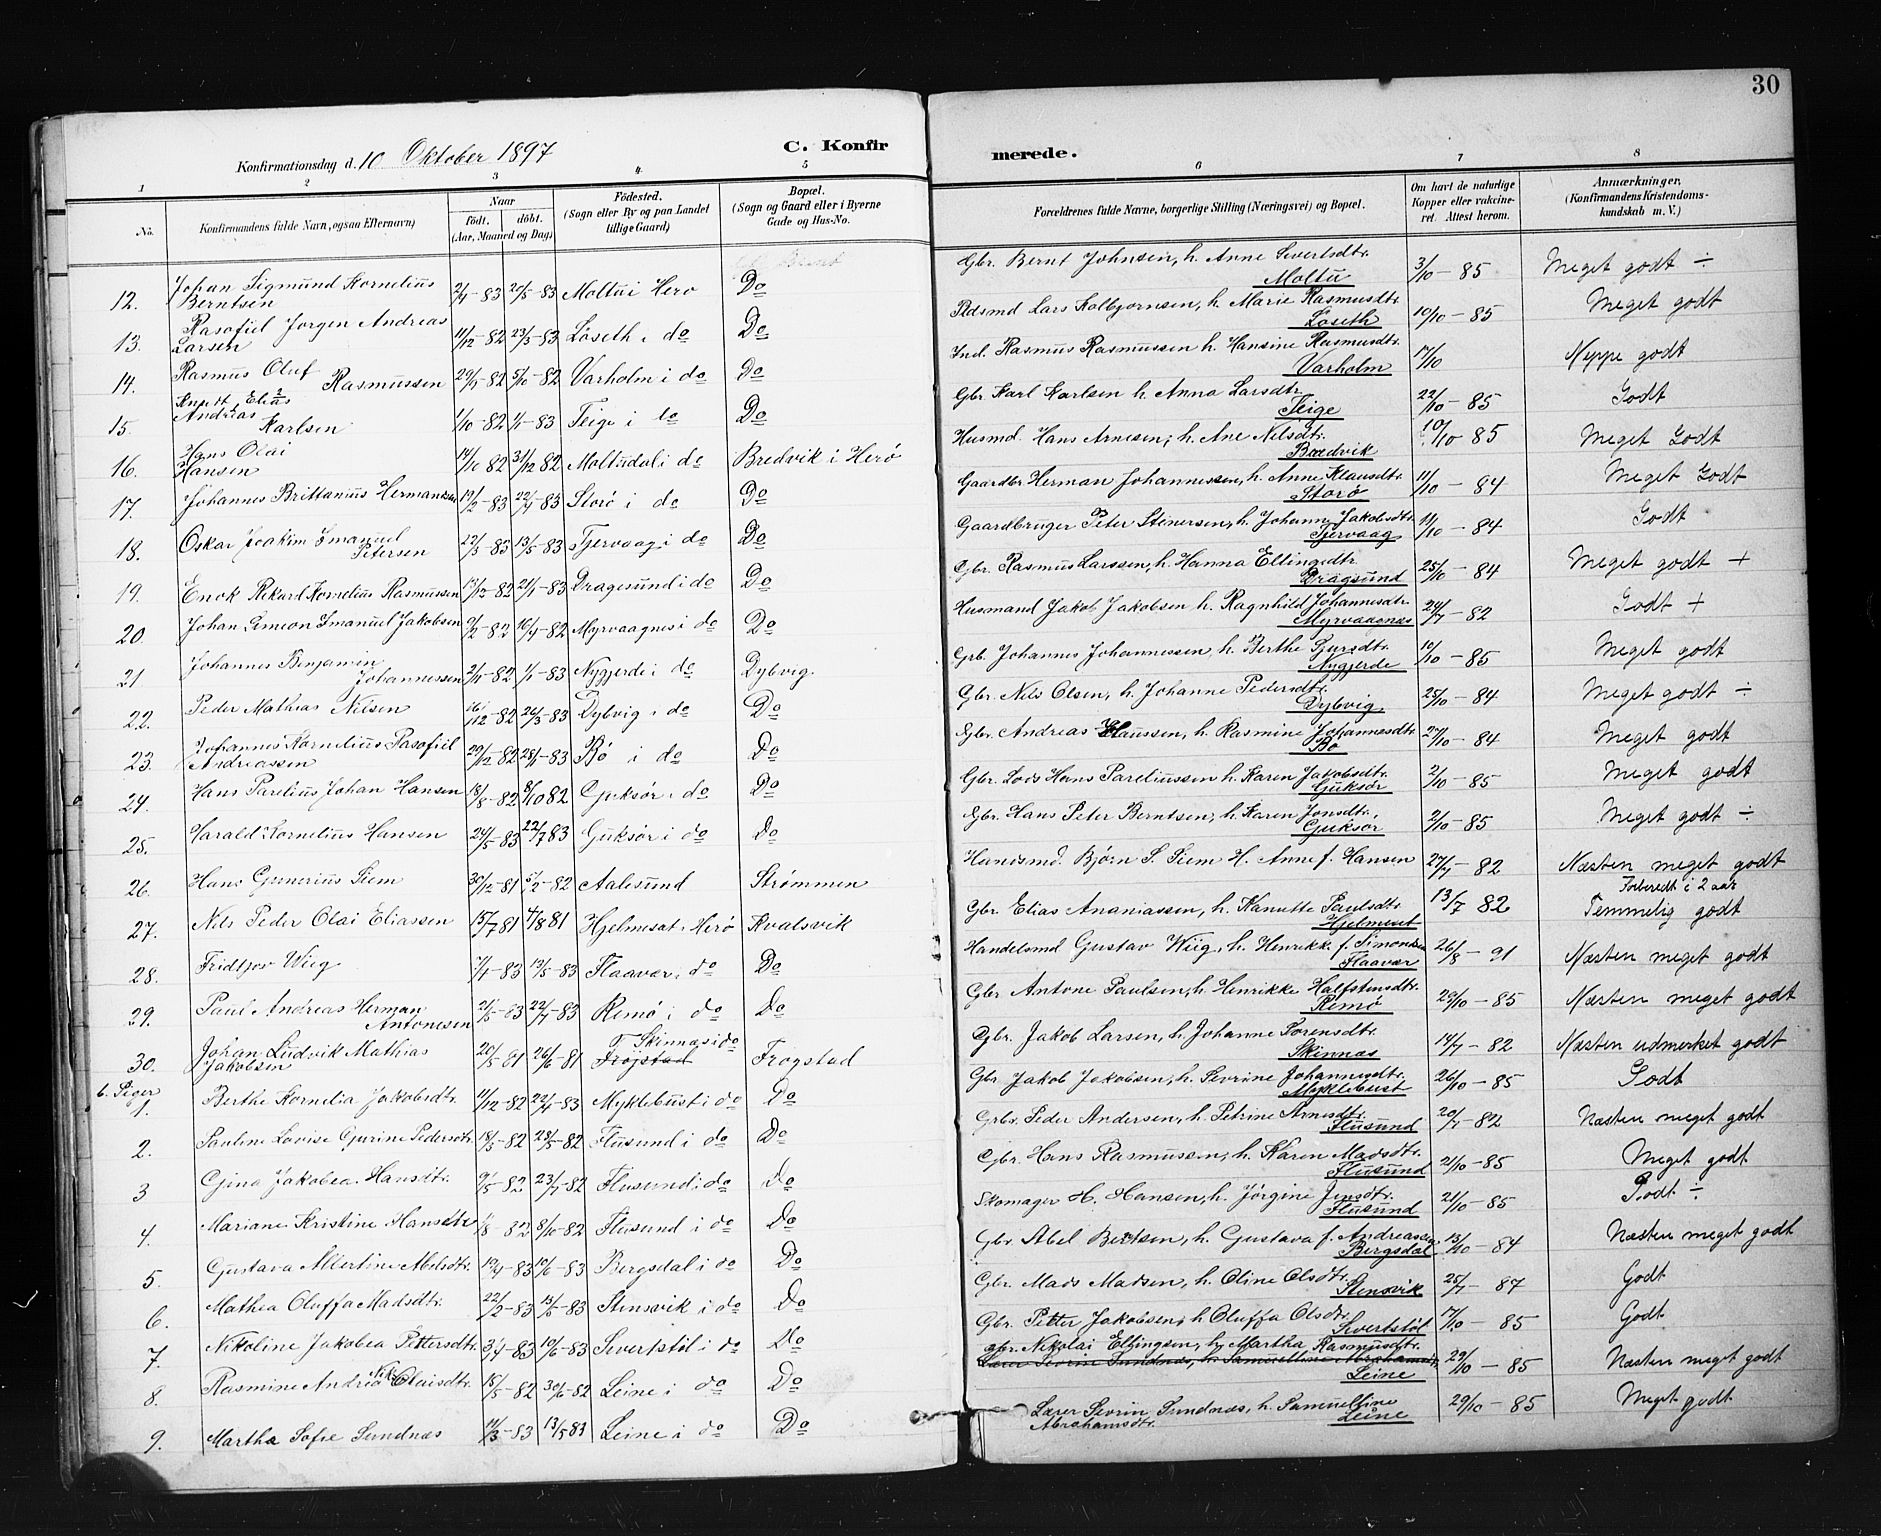 30
Konfirmationsdag d. 10 Oktober 1897
C. Konfirmerede.
1 2 3 4 5 6 7 8
No. Konfirmandens fulde Navn, ogsaa Efternavn) Naar født. døbt. (Aar, Maaned og Dag) Fødested. (Sogn eller By og paa Landet tillige Gaard) Bopæl. (Sogn og Gaard eller i Byerne Gade og Hus-No. Forældrenes fulde Navne, borgerlige Stilling (Næringsvei) og Bopæl. Om havt de naturlige Kopper eller vakcineret. Attest herom. Anmærkninger. (Konfirmandens Kristendomskundskab m. V.)
12. Johan Sigmund Kornelius Berntsen 2/4-83 20/5-83 Moltu i Hero Do Gbr. Bernt Johnsen, h. Anne Sivertsdtr. Moltu 3/10-85 Meget godt ÷
13. Rasofiel Jorgen Andreas Larsen 11/12-82 23/3-83 Løseth i do Do Pldsmd Lars Kolbjørnsen, h. Marie Rasmusdtr. Løseth 10/10-85 Meget godt
14. Rasmus Oluf Rasmussen 29/7-82 5/10-82 Varholm i do Do Ind. Rasmus Rasmussen h. Hansine Rasmusdtr. Varholm 17/10 Neppe godt
15. Knudt Elias Andreas Karlsen 1/10-82 1/1-83 Teige i do Do Gbr. Karl Karlsen h. Anna Larsdtr. Teige 22/10-85 Godt
16. Hans Olai Hansen 14/10 82 31/12 82 Moltudal i do Bredvik i Herø Husmd. Hans Arnesen, h. Ane Nilsdtr. Bredvik 10/10 85 Meget Godt
17. Johannes Brittanius Hermansen 19/2-83 22/4-83 Storø i do Do Gaardbr Herman Johannessen, h. Anne Klausdtr. Storø 11/10-84 Meget Godt
18. Oskar Joakim Imanuel Petersen 22/3-83 13/5-83 Tjervaag i do Do Gaardbruger Peter Stinersen, h. Johanne Jakobsdtr. Tjervaag 11/10-84 Godt
19. Enok Rikard Kornelius Rasmussen 13/12-82 21/1-83 Dragesund i do Do Gbr. Rasmus Larssen, h. Hanna Ellingsdtr. Dragsund 25/10-84 Meget godt +
20. Johan Simeon Imanuel Jakobsen 9/2-82 16/4-82 Myrvaagnes i do Do Husmand Jakob Jakobsen h. Ragnhild Johannesdtr. Myrvaagnæs 24/7-82 Godt +
21 Johannes Benjamin Johannessen 2/11-82 1/1-83 Nygjerde i do Dybvig Grb. Johannes Johannessen, h. Berthe Sjursdtr. Nygjerde 10/10-85 Meget godt
22. Peder Mathias Nilsen 16/12-82 26/3-83 Dybvig i do Do Gbr. Nils Olsen, h. Johanne Pedersdtr. Dybvig 25/10-84 Meget godt ÷
23. Johannes Kornelius Rasofiel Andreassen 29/12-82 28/1-83 Bø i do Do Gbr. Andreas Klaussen, h. Rasmine Johannesdtr. Bø 27/10-84 Meget godt
24. Hans Parelius Johan Hansen 18/8-82 8/10 82 Gjuksør i do Do Gbr. Lods Hans Pareliussen h. Karen Jakobsdtr. Gjuksør 2/10-85 Meget godt
25. Harald Kornelius Hansen 24/5-83 22/7 83 Gjuksør i do Do Gbr. Hans Peter Berntsen, h. Karen Jonsdtr. Gjuksør 2/10-85 Meget godt ÷
26. Hans Gunerius Siem 30/12-81 5/2-82 Aalesund Strømmen Handsmd. Bjørn S. Siem H. Anne f. Hansen 27/7-82 Næsten meget godt
27. Nils Peder Olai Eliassen 15/7 81 4/8 81 Hjelmeset i Herø Kvalsvik Gbr. Elias Ananiassen, h. Kanutte Paulsdtr. Hjelmeset 13/7 82 Forberedt i 2 aar Temmelig godt
28. Fridtjov Wiig 7/1-83 13/5-83 Flaavær i do Do Handelsmd Gustav Wiig, h. Henrikke f. Simonsen Flaavær 26/8-91 Næsten meget godt
29. Paul Andreas Herman Antonesen 21/5-83 22/7-83 Remø i do Do Gbr Antone Paulsen, h. Henrikke Halfstensdtr. Remø 29/10-85 Næsten meget godt
30. Johan Ludvik Mathias Jakobsen 20/5-81 26/6-81 Skinnæs i do Frøjstad Frøgstad Gbr. Jakob Larsen, h. Johanne Sorensdtr. Skinnæs 14/7-82 Næsten udmerket godt
b. Piger
1. Berthe Kornelia Jakobsdtr. 11/12-82 22/4-83 Myklebust i do Do Gbr Jakob Jakobsen, h. Sevrine Johannesdtr. Myklebust 26/10-85 Godt
2. Pauline Lovise Gurine Pedersdtr 18/3-82 28/5-82 Flusund i do Do Grbr. Peder Andersen, h. Petrine Arnesdtr. Flusund 20/7-82 Næsten meget godt
3 Gina Jakobea Hansdtr. 9/5-82 23/7-82 Flusund i do Do Gbr. Hans Rasmussen, h. Karen Madsdtr. Flusund 21/10-85 Meget godt
4. Mariane Kristine Hansdtr 1/8-82 8/10-82 Flusund i do Do Skomager H. Hansen, h. Jørgine Jensdtr. Flusund 21/10-85 Godt ÷
5. Gustava Albertine Abelsdtr. 19/4-83 10/6-83 Bergsdal i do Do Gbr Abel Bentsen, h. Gustava f. Andreassen Bergsdal 13/10-84 Næsten meget godt
6. Mathea Oluffa Madsdtr. 22/2-83 13/5-83 Stensvik i do Do Gbr. Mads Madsen, h. Oline Olsdtr. Stensvik 25/7-87 Godt
7. Nikoline Jakobea Pittersdtr. 3/4-83 10/6-83 Sivertstøl i do Do Gbr. Pitter Jakobsen, h Oluffa Olsdtr. Sivertstøl 17/10-85 Godt
8. Rasmine Andrea Nikolaisdtr. 18/5-82 30/6-82 Leine i do Do gbr. Nikolai Ellingsen, h. Martha Rasmusdtr. Lærer Sevrin Sundnæs, h. Samuelline Abrahamsdtr. Leine 29/10-85 Næsten meget godt
9. Martha Sofie Sundnæs 14/3-83 13/5 83 Leine i do Do Lærer Sevrin Sundnæs, h. Samuelline Abrahamsdtr. Leine 29/10-85 Meget godt